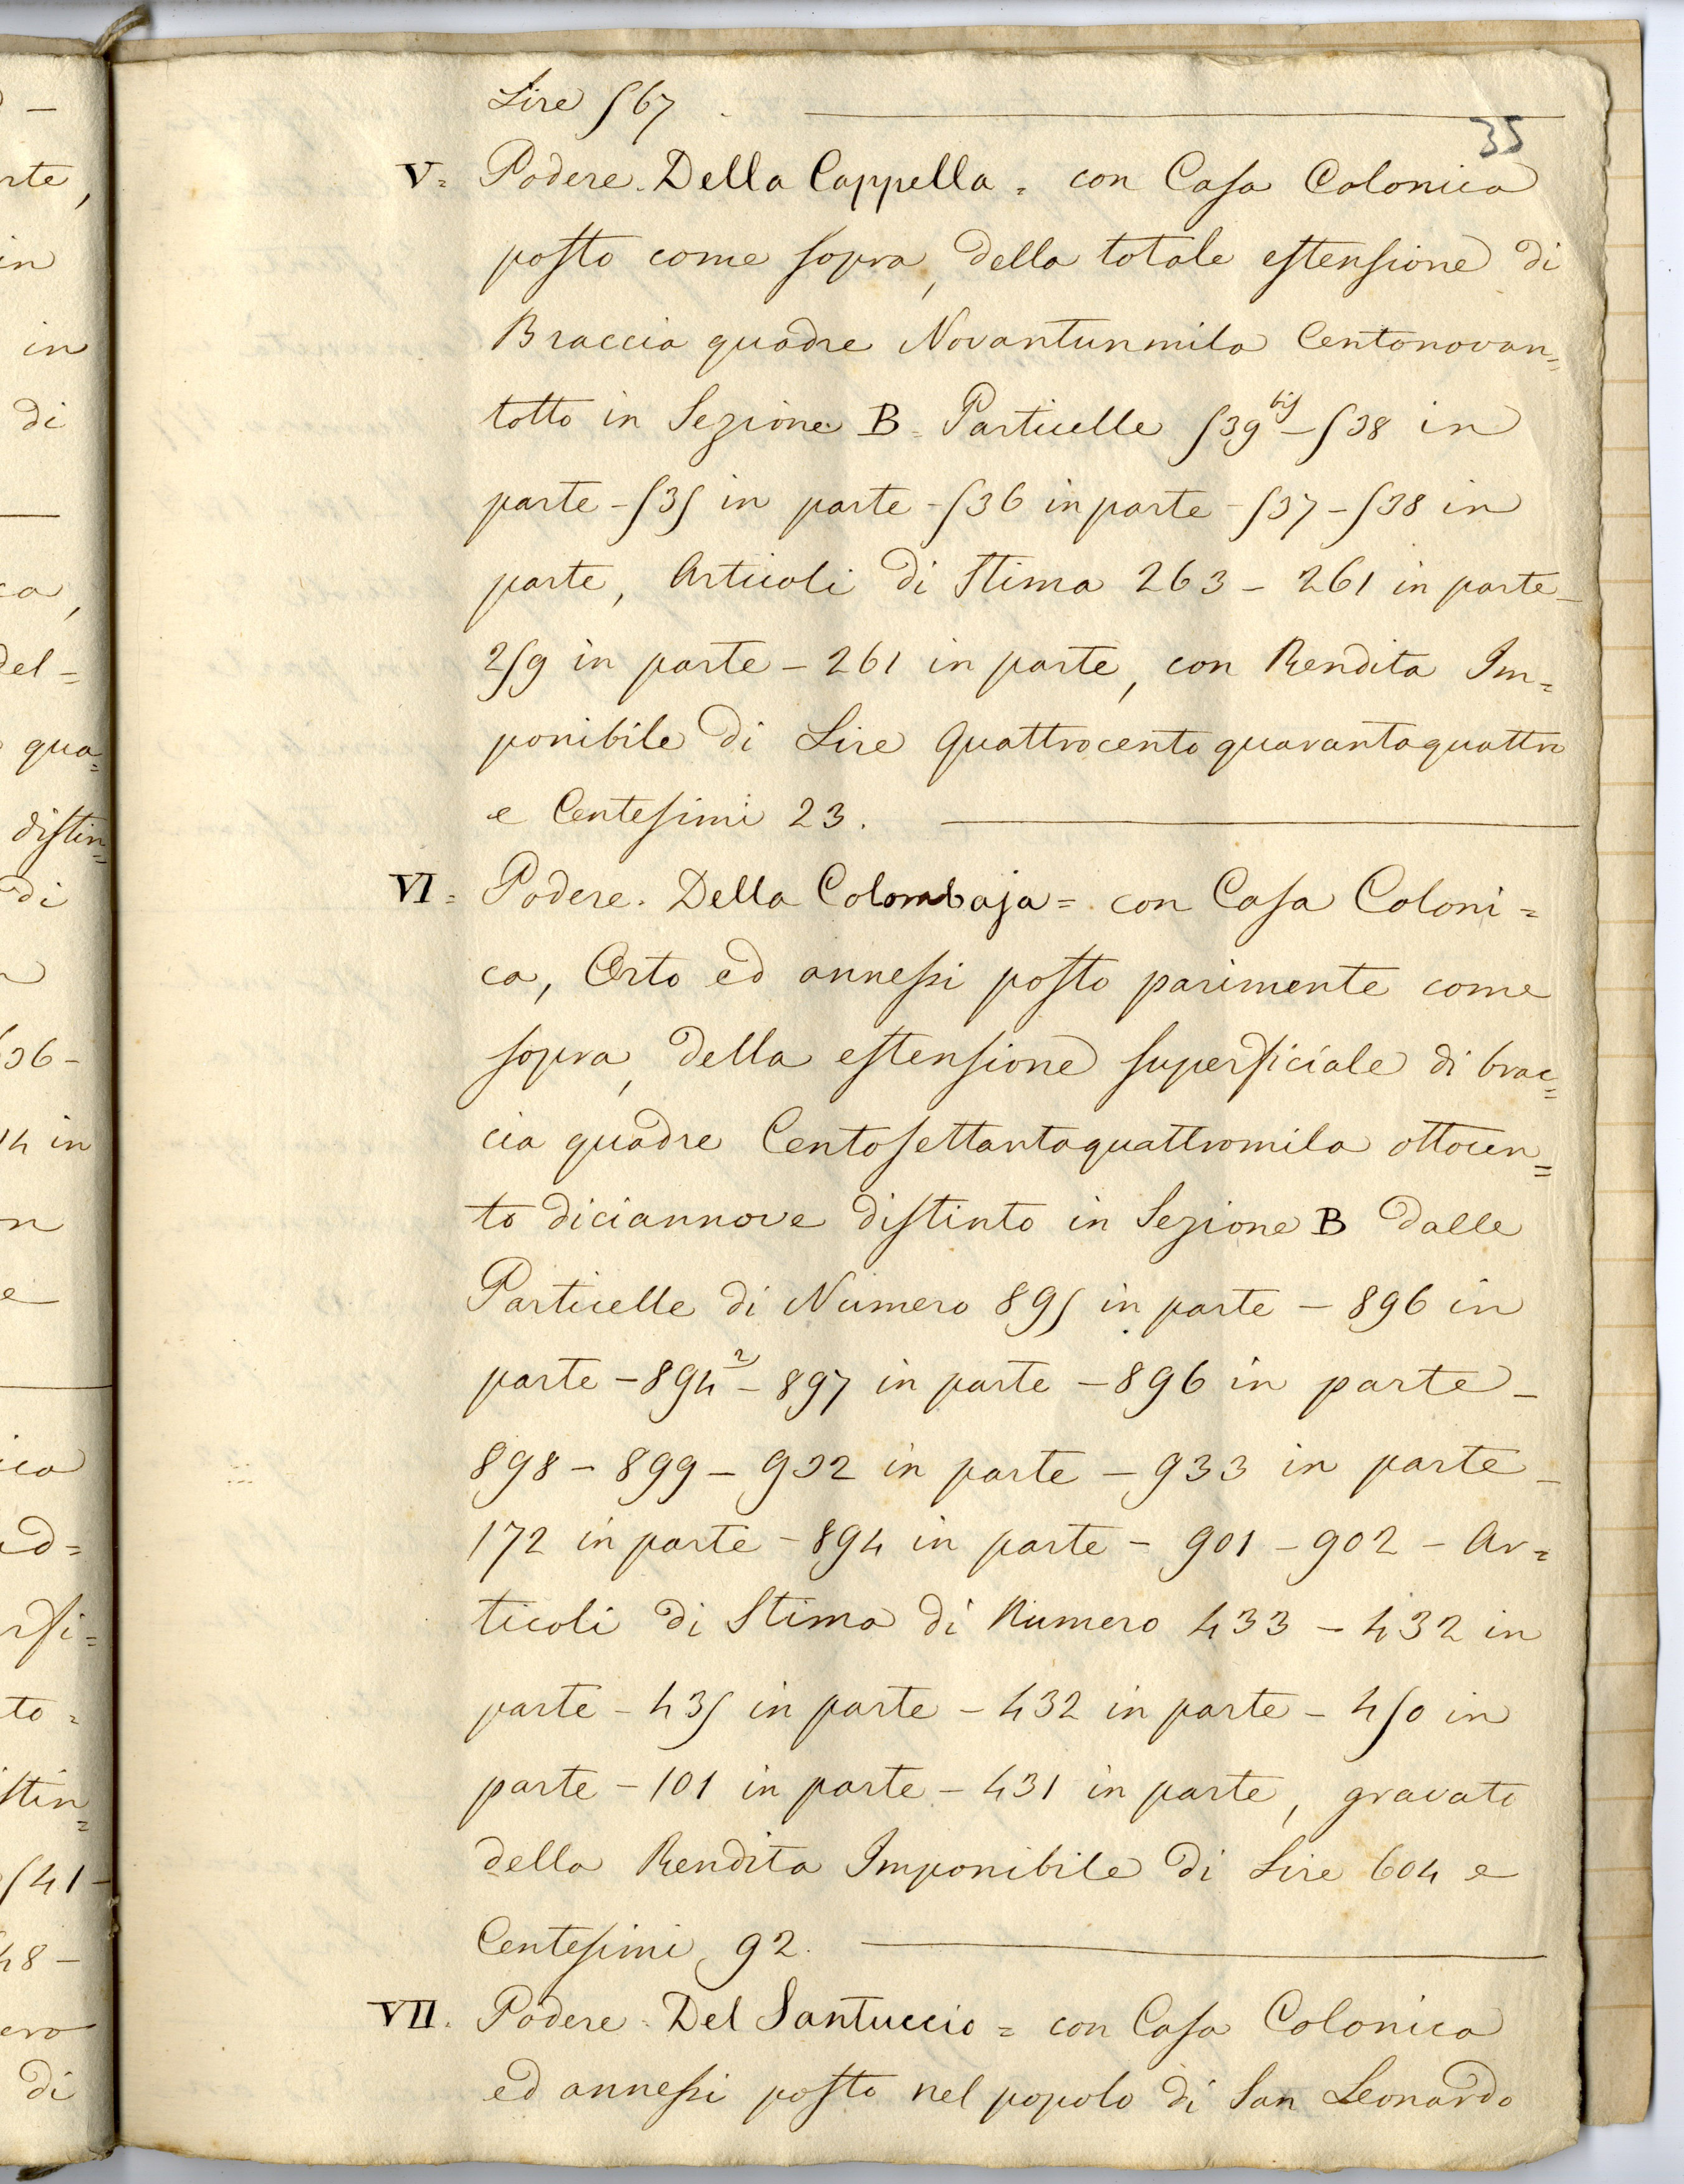 Lire 567.
35
V= Podere. Della Cappella = con Casa Colonica
posto come sopra, della totale estensione di
Braccia quadre Novantunmila Centonovan=
totto in Sezione B = Particelle 539 bis - 538 in
parte - 535 in parte - 536 in parte - 537 - 538 in
parte, Articoli di Stima 263 - 261 in parte -
259 in parte - 261 in parte, con Rendita Im=
ponibile di Lire Quattrocento quarantaquattro
e Centesimi 23.
VI= Podere. Della Colombaja = con Casa Coloni=
ca, Orto ed annessi posto parimente come
sopra, della estensione superficiale di brac=
cia quadre Centosettantaquattromila ottocen=
to diciannove distinto in Sezione B dalle
Particelle di Numero 895 in parte - 896 in
parte - 894² - 897 in parte - 896 in parte -
898 - 899 - 932 in parte - 933 in parte -
172 in parte - 894 in parte - 901 - 902 - Ar=
ticoli di Stima di Numero 433 - 432 in
parte - 435 in parte - 432 in parte - 450 in
parte - 101 in parte - 431 in parte, gravato
della Rendita Imponibile di Lire 604 e
Centesimi 92.
VII. Podere. Del Santuccio = con Casa Colonica
ed annessi posto nel popolo di San Leonardo